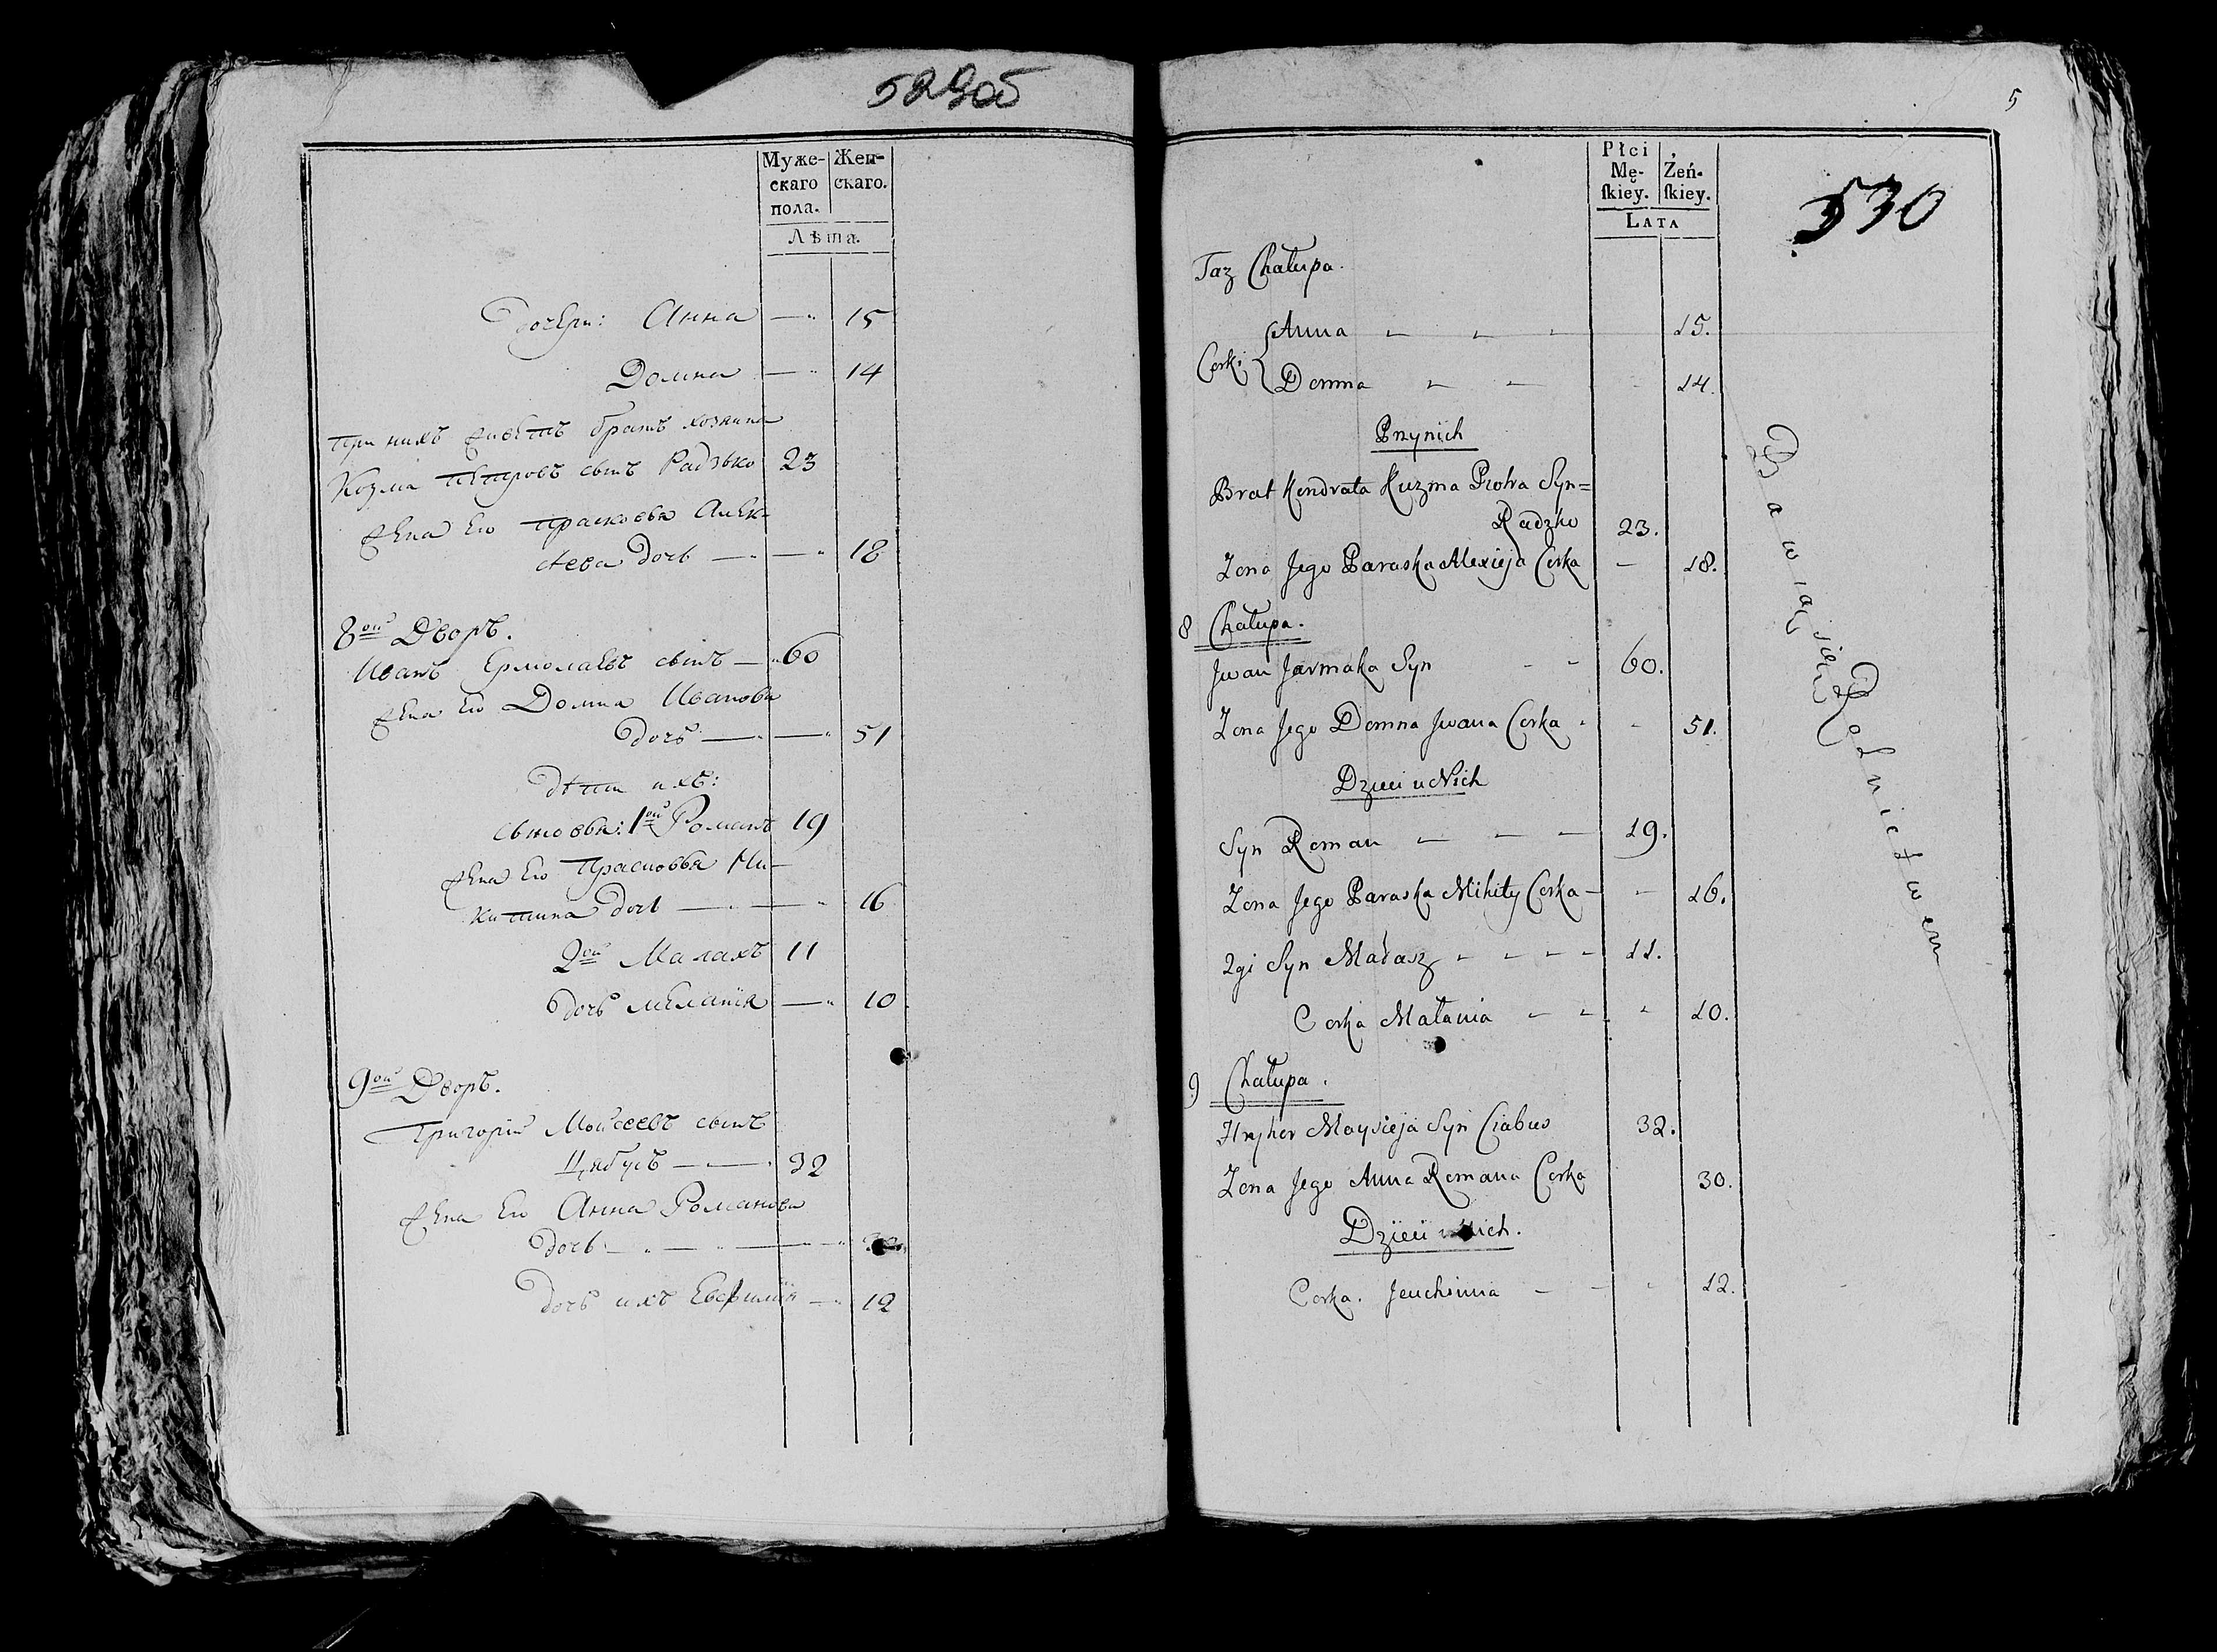 529об
Муже- Жен-
скаго скаго.
пола.
Лѣта.
Дочери: Анна — 15
Домна — 14
при нихъ живетъ братъ хозяина
Козма Петровъ сынъ Радзько 23
жена Его Прасковья Алек-
сѣева дочь — — 18
8ой Дворъ.
Иванъ Ермолаевъ сынъ — 60
жена Его Домна Иванова
дочь — — 51
дѣти ихъ:
сыновья: 1ой Романъ 19
жена Его Прасковья Ни-
китина дочь — — 16
2ой Малахъ 11
дочь Меланія — 10
9ой Дворъ.
Григорій Мойсеевъ сынъ
Цябусъ — 32
жена Его Анна Романова
дочь — — —
дочь ихъ Евфимія — 12
5
530
Płci
Mę- Żeń-
ſkiey. ſkiey.
LATA
Taz Chałupa.
Corki { Anna - - - 15.
Domna - - - 14.
Przynich
Brat Kondrata Kuzma Piotra Syn=
Radzko 23.
Zona Jego Paraska Alexieja Corka — 18.
8 Chałupa.
Jwan Jarmaka Syn - - 60.
Zona Jego Domna Jwana Corka - - 51.
Dzieci u Nich
Syn Roman — — — 19.
Zona Jego Paraska Mikity Corka — - 16.
2gi Syn Małasz - - - - 11.
Corka Małania - - - 10.
9 Chałupa.
Hryhor Moysieja Syn Ciabus 32.
Zona Jego Anna Romana Corka 30.
Dzieci u Nich.
Corka. Jeuchimia - - - 12.
Bawią się Rolnictwem